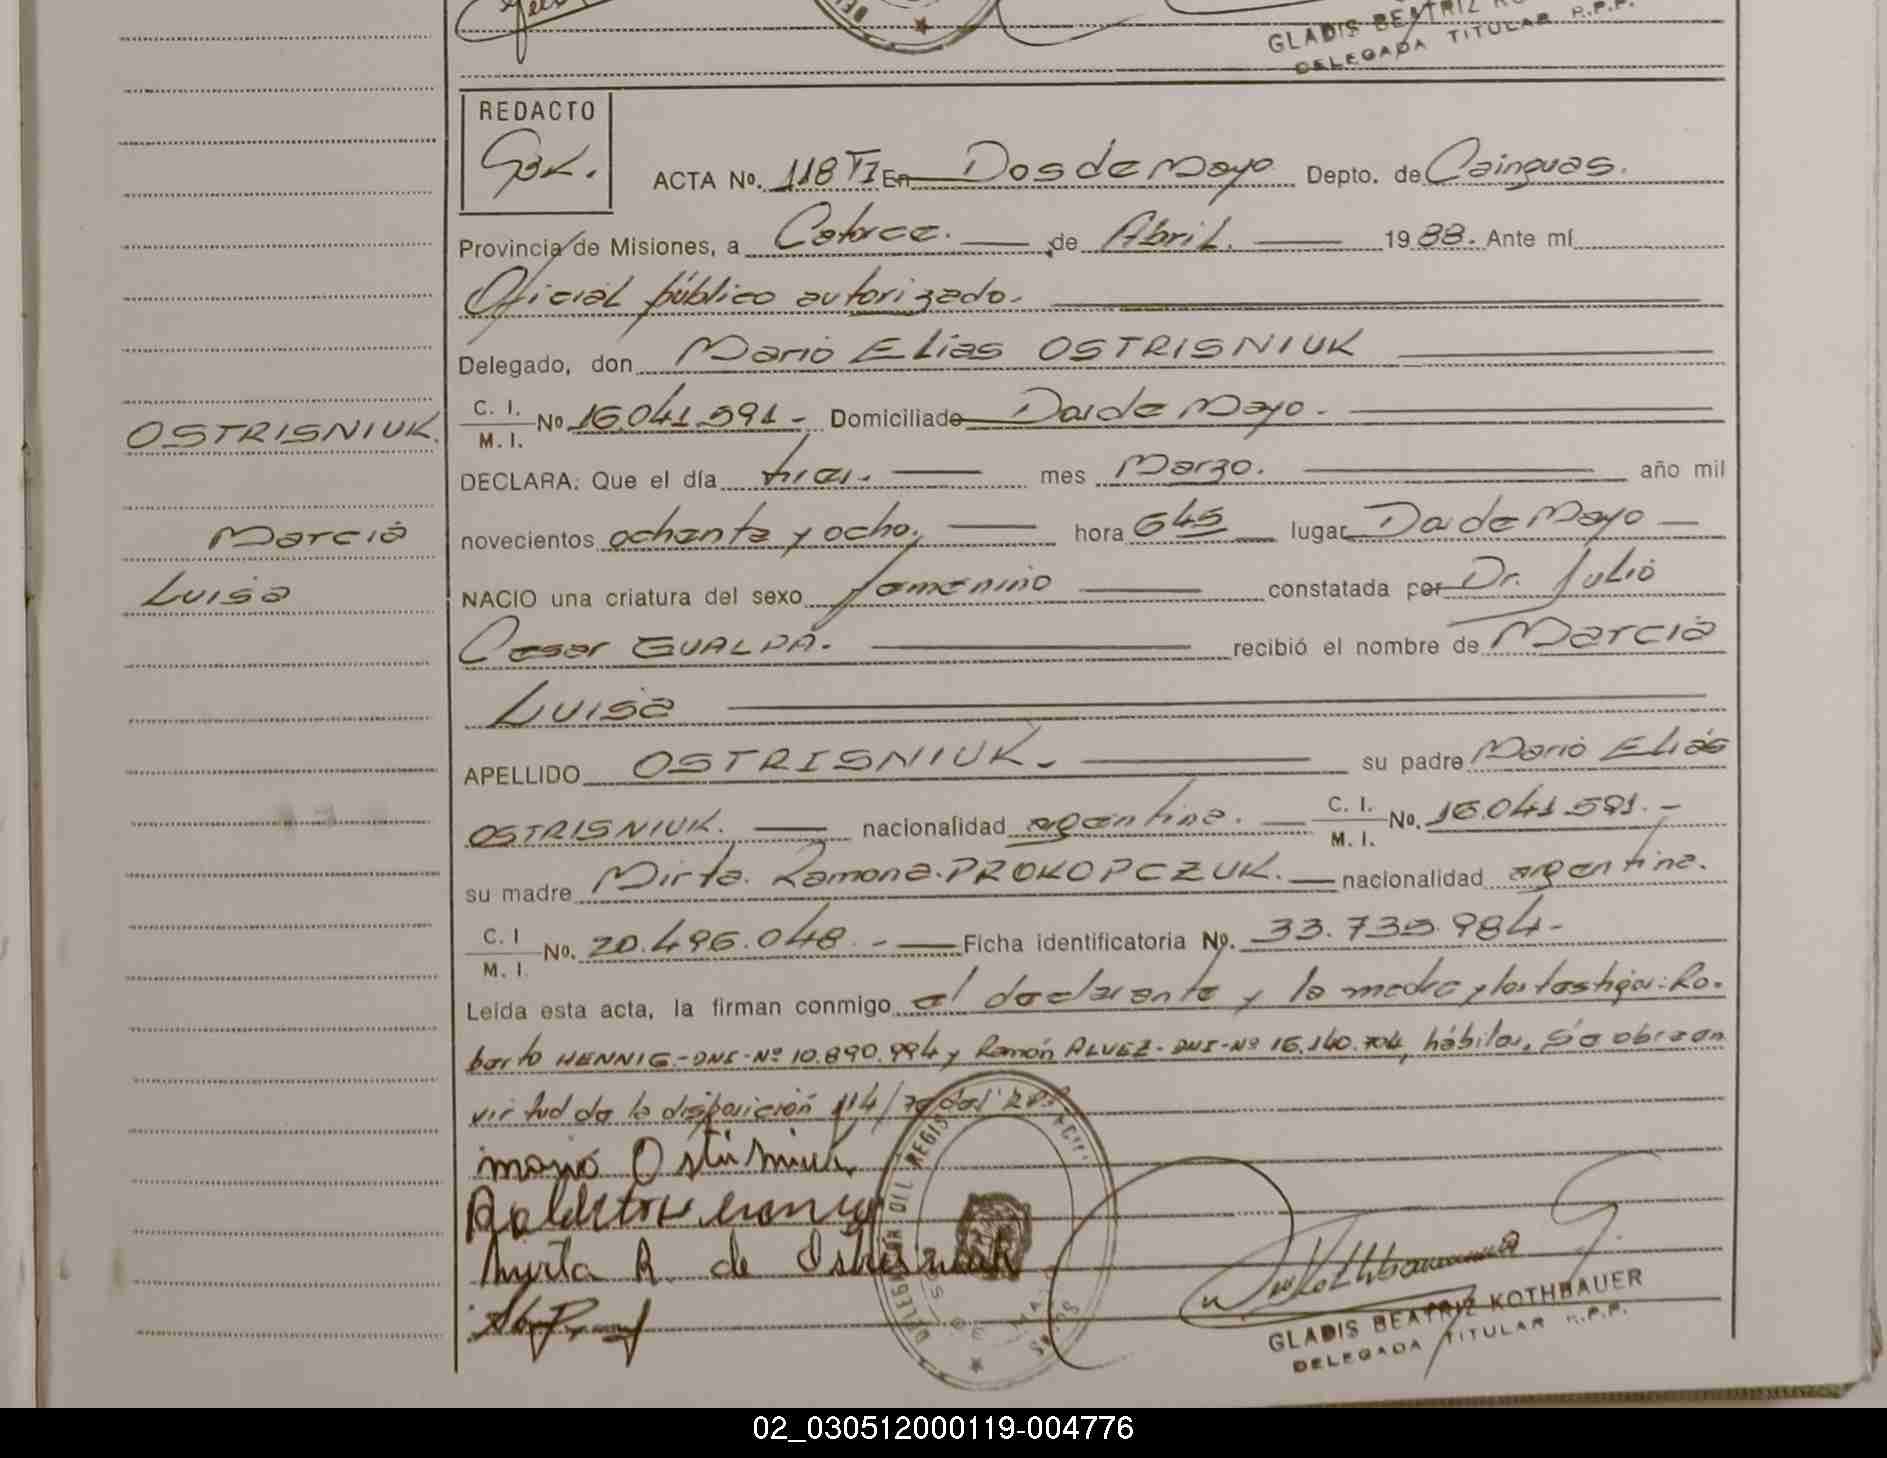 GLADIS BEATRIZ
DELEGADA TITULAR R.P.P.
REDACTO
GBK.
ACTA No. 118 TI En Dos de Mayo Depto. de Cainguas.
Provincia de Misiones, a Catorce. de Abril. 1988. Ante mí
Oficial público autorizado.
Delegado, don Mario Elias OSTRISNIUK
C. I.
M. I. No 16.041.591 - Domiciliado Dos de Mayo.
OSTRISNIUK.
DECLARA: Que el día tres. mes Marzo. año mil
novecientos ochenta y ocho, hora 645 lugar Dos de Mayo
Marcia
NACIO una criatura del sexo femenino constatada por Dr. Julio
Luisa
Cesar GUALDA. recibió el nombre de Marcia
Luisa
APELLIDO OSTRISNIUK. su padre Mario Elias
OSTRISNIUK. nacionalidad argentina. C. I. M. I. No. 16.041.591. -
su madre Mirta Ramona PROKOPCZUK. nacionalidad argentina.
C. I M. I. No. 20.496.048. - Ficha identificatoria No. 33.735.984-
Leída esta acta, la firman conmigo el declarante y la madre y los testigos: Ro.
berto HENNIG-DNI-Nº 10.890.994 y Ramón ALVEZ-DNI-Nº 16.140.704, hábiles, Se obra en
virtud de la disposición 114/
Mario Ostrisniuk
Mirta R. de Ostrisniuk
DELEGACION DEL REGIS
GLADIS BEATRIZ KOTHBAUER
DELEGADA TITULAR R.P.P.
02_030512000119-004776